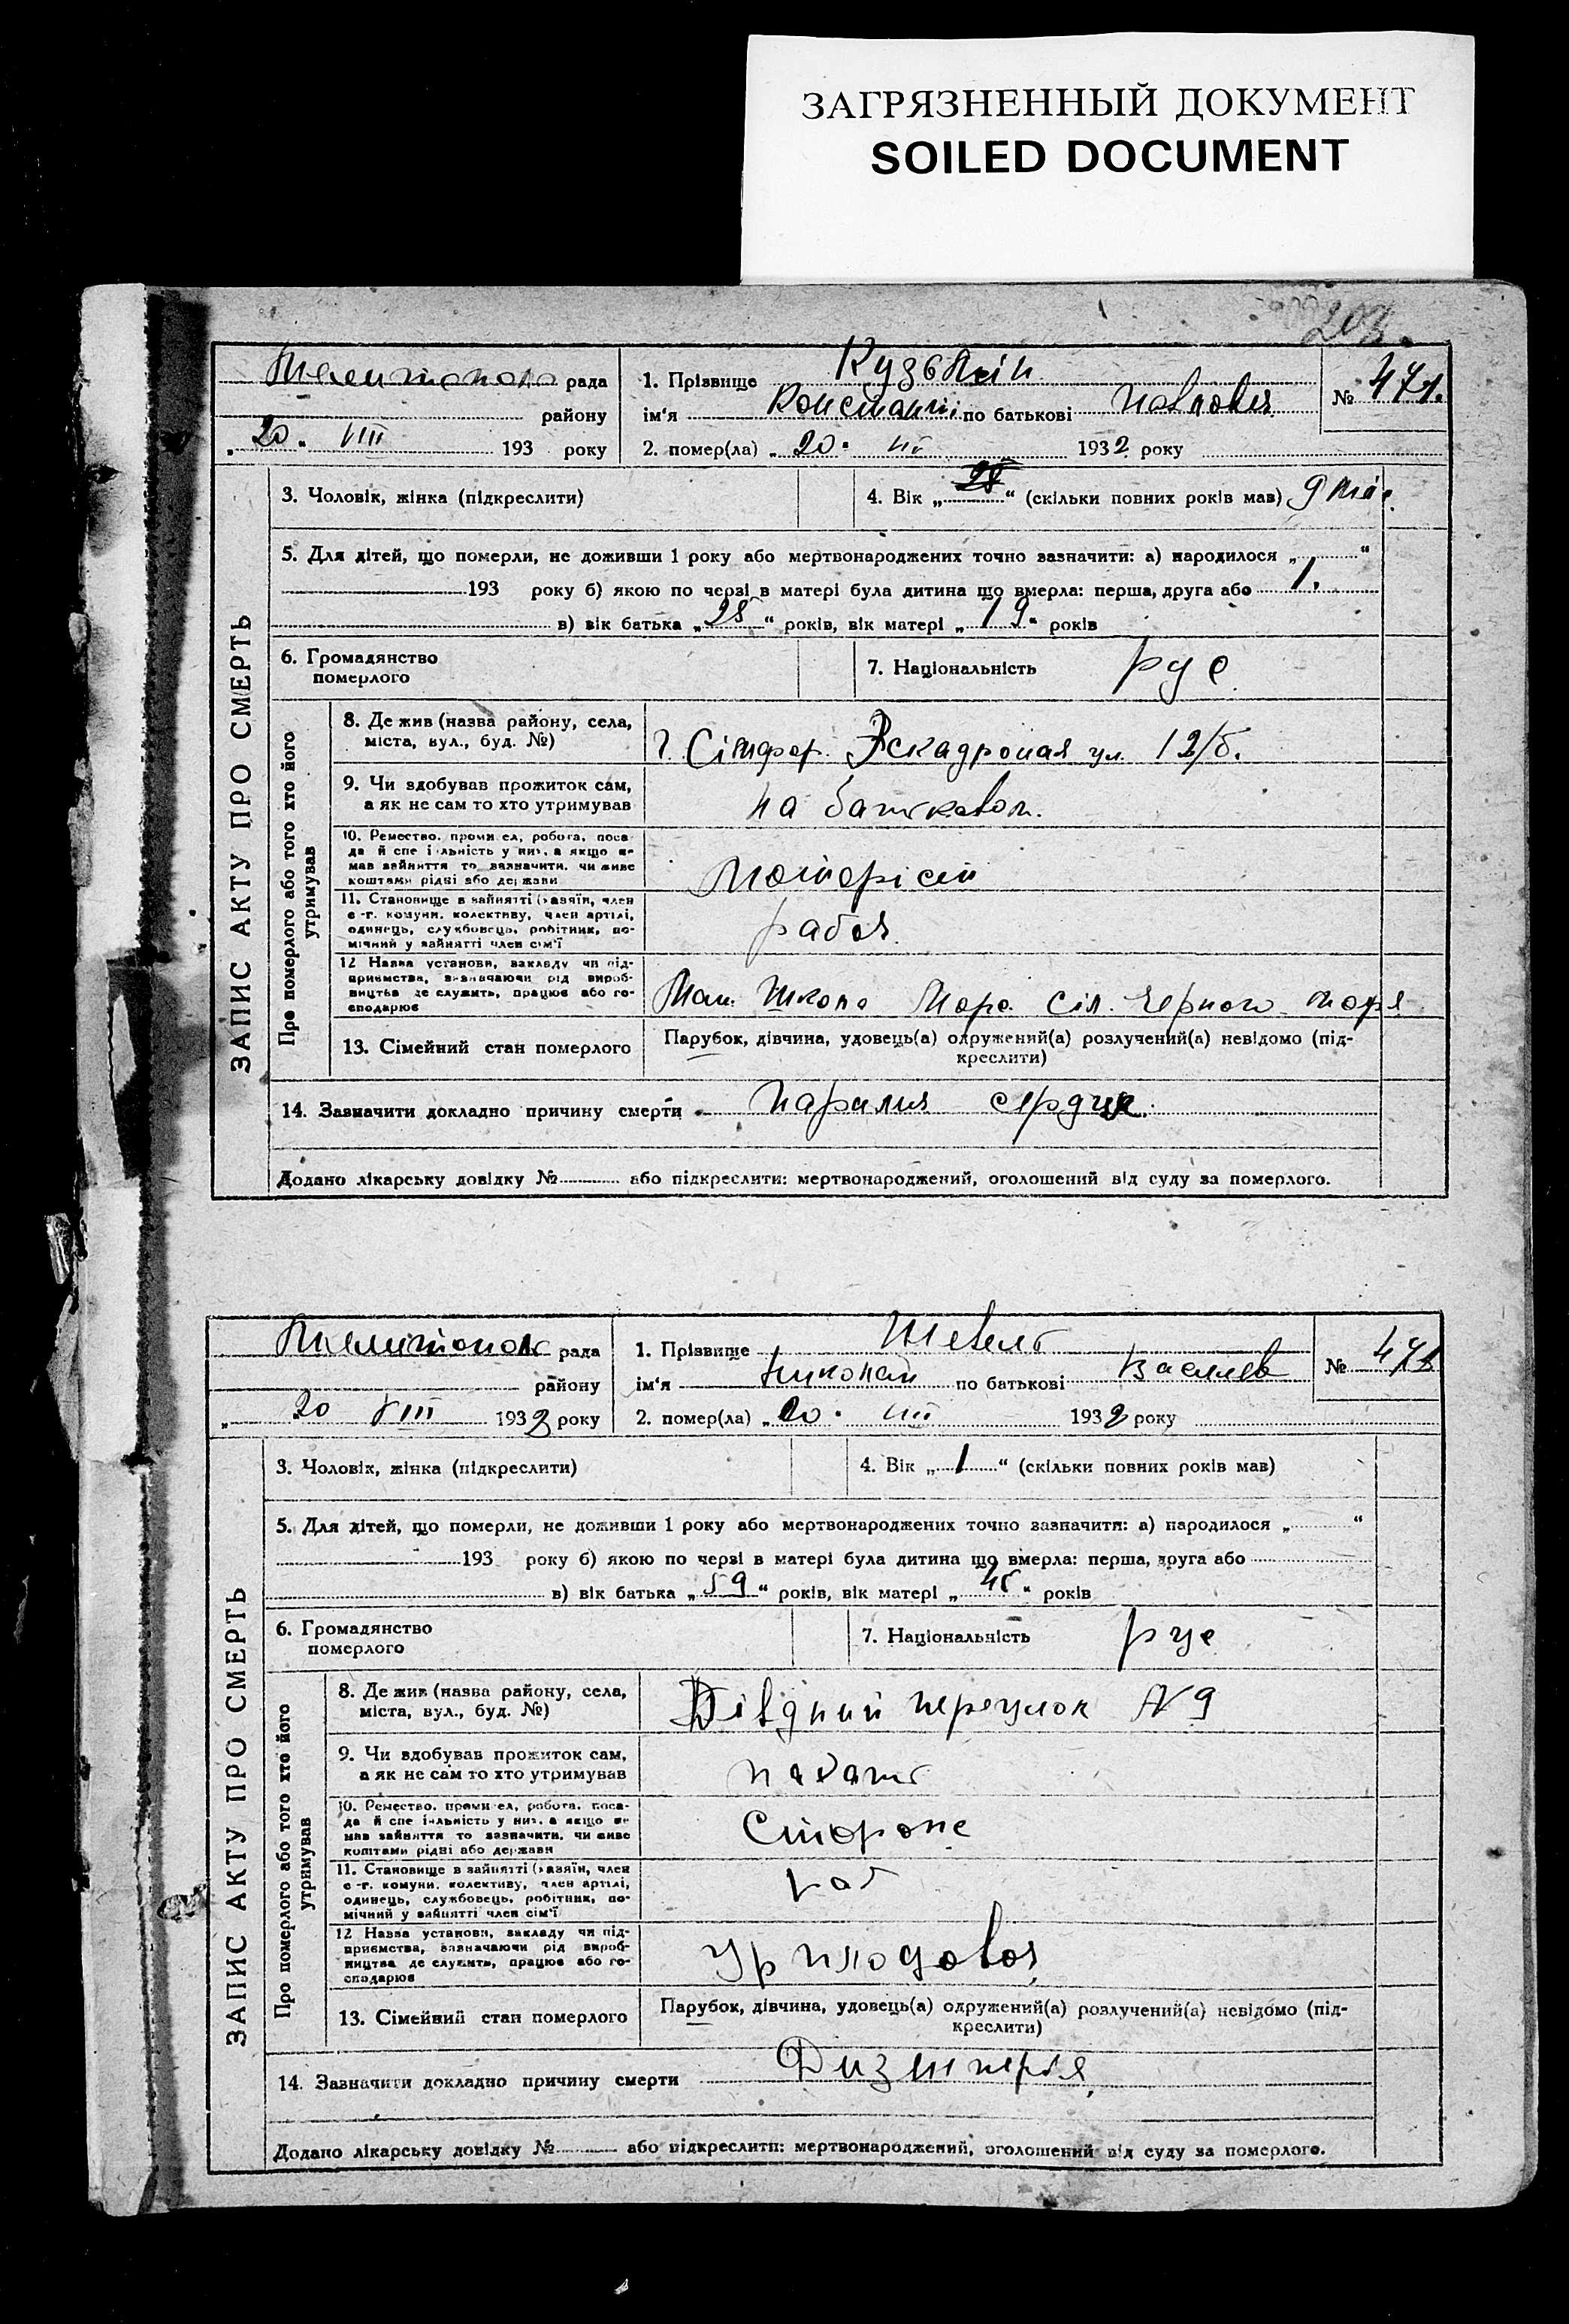 ЗАГРЯЗНЕННЫЙ ДОКУМЕНТ
SOILED DOCUMENT
203.
ЗАПИС АКТУ ПРО СМЕРТЬ
рада
району
„20“ VIII 193 року
1. Прізвище Кузьмін
ім'я Констант по батькові Павлович
2. помер(ла) „20“ VIII 1932 року
№ 471.
3. Чоловік, жінка (підкреслити)
4. Вік „28“ (скільки повних років мав) 9 міс.
5. Для дітей, що померли, не доживши 1 року або мертвонароджених точно зазначити: а) народилося „ “
193 року б) якою по черзі в матері була дитина що вмерла: перша, друга або 1.
в) вік батька „28“ років, вік матері „19“ років
6. Громадянство
померлого
7. Національність рус
Про померлого або того хто його
утримував
8. Де жив (назва району, села,
міста, вул., буд. №)
г. Сімфер. Эскадроная ул. 12/б.
9. Чи здобував прожиток сам,
а як не сам то хто утримував
на батьковом.
10. Ремество, промисел, робота, поса-
да й спеціяльність у них, а якщо не
мав зайняття то зазначити, чи живе
коштами рідні або держави
Моторіст
11. Становище в зайнятті (хазяїн, член
с.-г. комуни, колективу, член артілі,
одинець, службовець, робітник, по-
мічний у зайнятті член сім'ї
рабоч.
12 Назва установи, закладу чи під-
приємства, зазначаючи рід вироб-
ництва де служить, працює або го-
сподарює
Школа Морс. Сіл. Черного моря
13. Сімейний стан померлого
Парубок, дівчина, удовець(а) одружений(а) розлучений(а) невідомо (під-
креслити)
14. Зазначити докладно причину смерти Паралич сердця.
Додано лікарську довідку № або підкреслити: мертвонароджений, оголошений від суду за померлого.
ЗАПИС АКТУ ПРО СМЕРТЬ
рада
району
„ 20 VIII 1932 року
1. Прізвище Шевель
ім'я Николай по батькові Васильев
2. помер(ла) „20“ VIII 1932 року
№ 472
3. Чоловік, жінка (підкреслити)
4. Вік „1“ (скільки повних років мав)
5. Для дітей, що померли, не доживши 1 року або мертвонароджених точно зазначити: а) народилося „ “
193 року б) якою по черзі в матері була дитина що вмерла: перша, друга або
в) вік батька „59“ років, вік матері „45“ років
6. Громадянство
померлого
7. Національність рус
Про померлого або того хто його
утримував
8. Де жив (назва району, села,
міста, вул., буд. №)
переулок № 9
9. Чи здобував прожиток сам,
а як не сам то хто утримував
10. Ремество, промисел, робота, поса-
да й спеціяльність у них, а якщо не
мав зайняття то зазначити, чи живе
коштами рідні або держави
Стороже
11. Становище в зайнятті (хазяїн, член
с.-г. комуни, колективу, член артілі,
одинець, службовець, робітник, по-
мічний у зайнятті член сім'ї
раб
12 Назва установи, закладу чи під-
приємства, зазначаючи рід вироб-
ництва де служить, працює або го-
сподарює
13. Сімейний стан померлого
Парубок, дівчина, удовець(а) одружений(а) розлучений(а) невідомо (під-
креслити)
14. Зазначити докладно причину смерти
Додано лікарську довідку № або підкреслити: мертвонароджений, оголошений від суду за померлого.